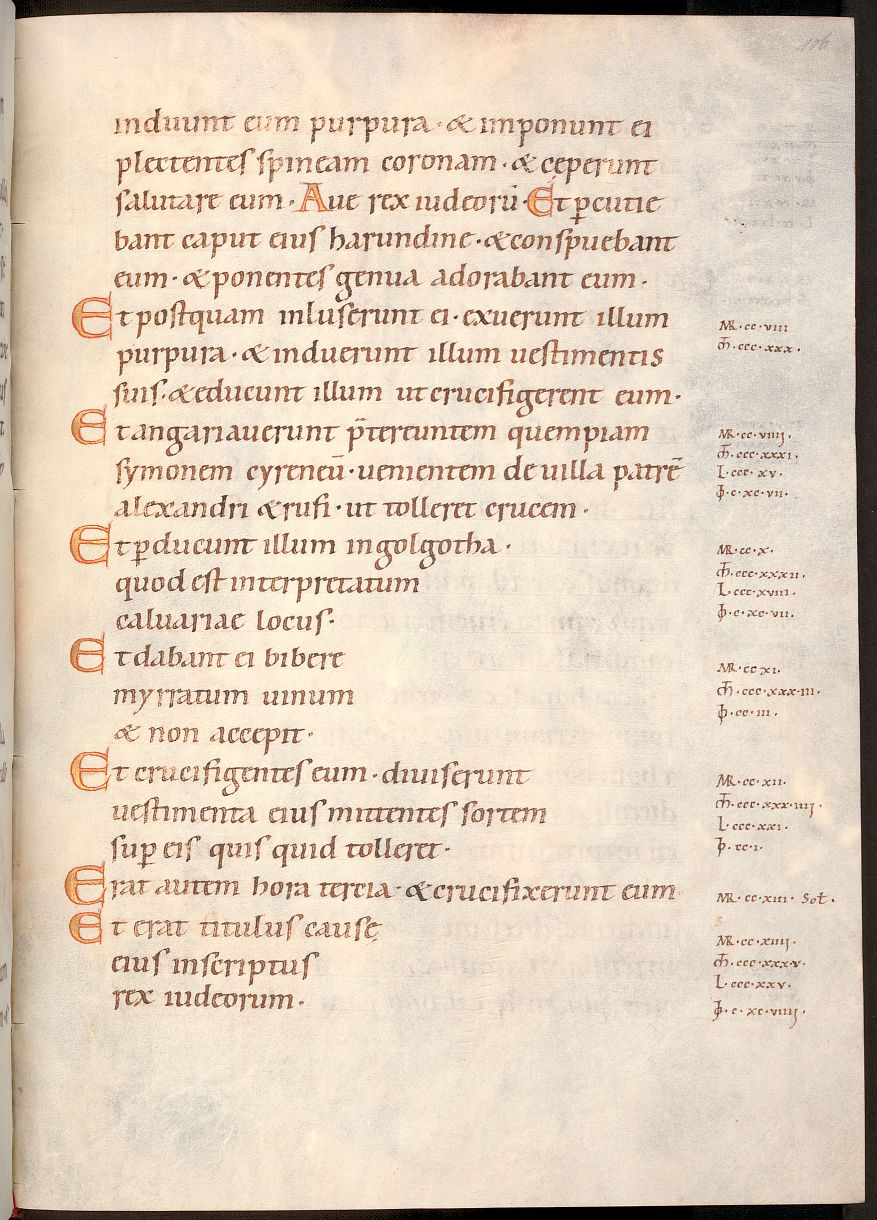 106
induunt eum purpura · & imponunt ei
plectentes spineam coronam · & cęperunt
salutare eum · Aue rex iudeorū · Et ꝑcutie
bant caput eius harundine · & conspuebant
eum · & ponentes genua adorabant eum ·
Et postquam inluserunt ei · exuerunt illum
MR · cc · viii
purpura · & induerunt illum uestimentis
m̄ · ccc · xxx ·
suis · & educunt illum ut crucifigerent eum ·
Et angariauerunt p̄tereuntem quempiam
MR · cc · viiii ·
m̄ · ccc · xxxi ·
symonem cyreneū · uenientem de uilla patrē
L · ccc · xv ·
ꝕ · c · xc · vii ·
alexandri & rufi · ut tolleret crucem ·
Et ꝑducunt illum in golgotha ·
MR · cc · x ·
m̄ · ccc · xxxii ·
quod est interpretatum
L · ccc · xviii ·
caluariae locus ·
ꝕ · c · xc · vii ·
Et dabant ei bibere
MR · cc · xi ·
myrratum uinum
m̄ · ccc · xxx · iii ·
ꝕ · cc · iii ·
& non accepit ·
Et crucifigentes eum · diuiserunt
MR · cc · xii ·
uestimenta eius mittentes sortem
m̄ · ccc · xxx · iiii ·
L · ccc · xxi ·
suꝑ eis quis quid tolleret ·
ꝕ · cc · i ·
Erat autem hora tercia · & crucifixerunt eum
MR · cc · xiii · Sol ·
Et erat titulus causę
MR · cc · xiiii ·
eius inscriptus
m̄ · ccc · xxx · v ·
L · ccc · xxv ·
rex iudeorum ·
ꝕ · c · xc · viiii ·